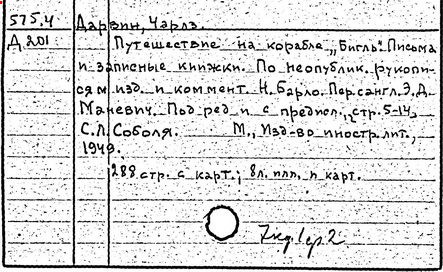 575.4 Дарвин, Чарлз.
Д 201 Путешествие на корабле „Бигль". Письма
и записные книжки. По неопублик. рукопи-
сям изд. и коммент. Н. Барло. Пер. с англ. Э. Д.
Маневич. Под ред. и с предисл., стр. 5-14,
С. Л. Соболя. М., Изд-во иностр. лит.,
1949.
288 стр. с карт.; 8 л. илл. и карт.